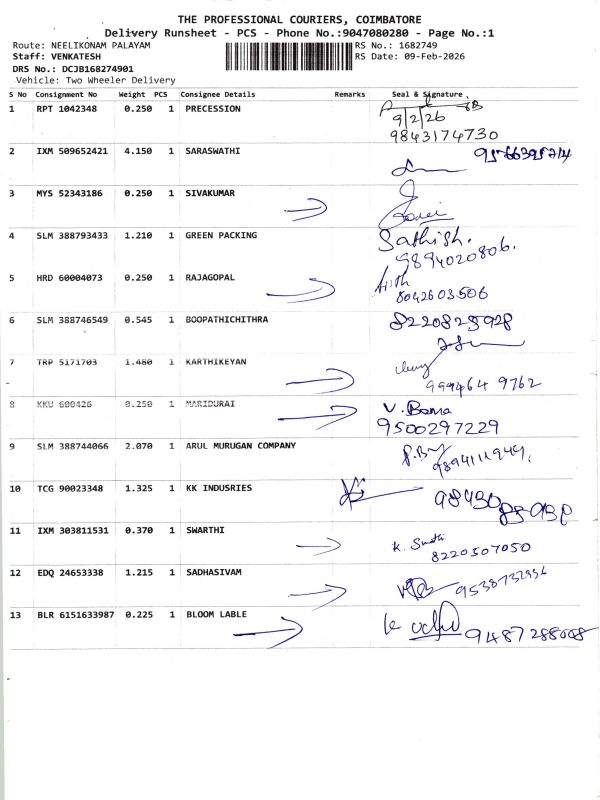 THE PROFESSIONAL COURIERS, COIMBATORE
Delivery Runsheet - PCS - Phone No.:9047080280 - Page No.:1
Route: NEELIKONAM PALAYAM RS No.: 1682749
Staff: VENKATESH RS Date: 09-Feb-2026
DRS No.: DCJB168274901
Vehicle: Two Wheeler Delivery
S No Consignment No Weight PCS Consignee Details Remarks Seal & Signature
1 RPT 1042348 0.250 1 PRECESSION
9/2/26
9843174730
2 IXM 509652421 4.150 1 SARASWATHI
3 MYS 52343186 0.250 1 SIVAKUMAR
4 SLM 388793433 1.210 1 GREEN PACKING Sathish.
9894020806.
5 HRD 60004073 0.250 1 RAJAGOPAL
8042603506
6 SLM 388746549 0.545 1 BOOPATHICHITHRA 8220825928
7 TRP 5171703 1.480 1 KARTHIKEYAN
999464 9762
8 KKU 600426 0.250 1 MARIDURAI V. Bama
9500297229
9 SLM 388744066 2.070 1 ARUL MURUGAN COMPANY
9894111949.
10 TCG 90023348 1.325 1 KK INDUSRIES
11 IXM 303811531 0.370 1 SWARTHI
8220507050
12 EDQ 24653338 1.215 1 SADHASIVAM
13 BLR 6151633987 0.225 1 BLOOM LABLE